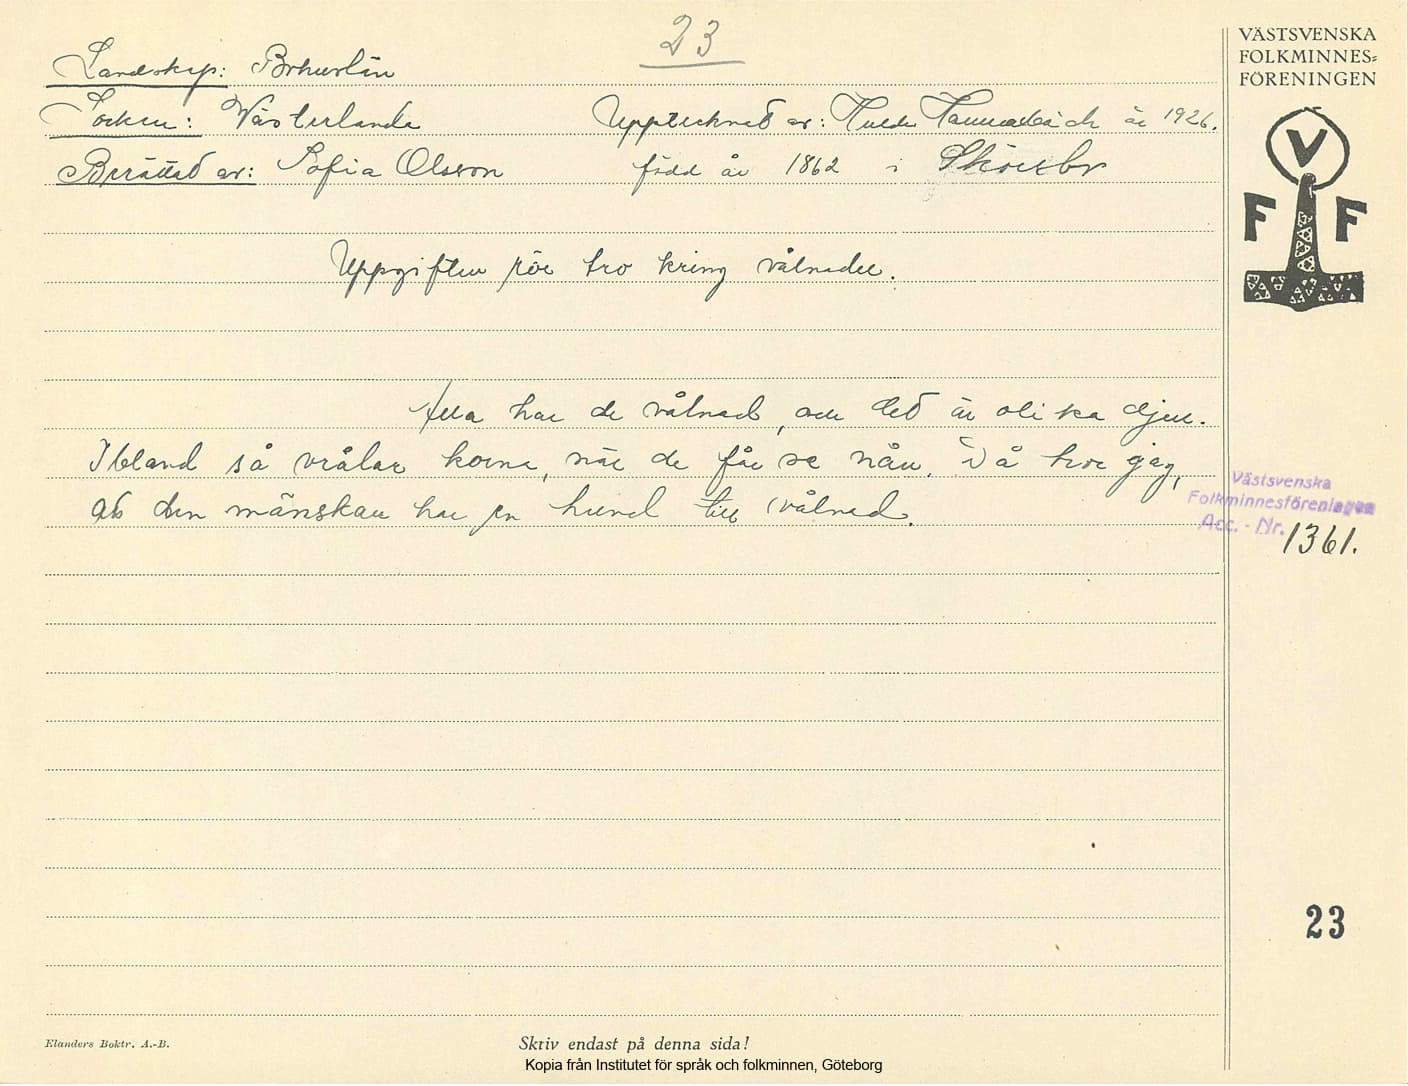 23
VÄSTSVENSKA
FOLKMINNES=
FÖRENINGEN
Landskap: Bohuslän
Socken: Västerlanda Upptecknad av: Hulda Hammarbäck år 1926.
Berättad av: Sofia Olsson född år 1862 i
V
F F
Uppgiften rör tro kring vålnader.
Alla har de vålnad, och det är olika djur.
Ibland så vrålar korna, när de får se nån. Då tror jag,
att den mänskan har en hund till vålnad.
Västsvenska
Folkminnesföreningen
Acc. - Nr. 1361.
23
Elanders Boktr. A.-B.
Skriv endast på denna sida!
Kopia från Institutet för språk och folkminnen, Göteborg